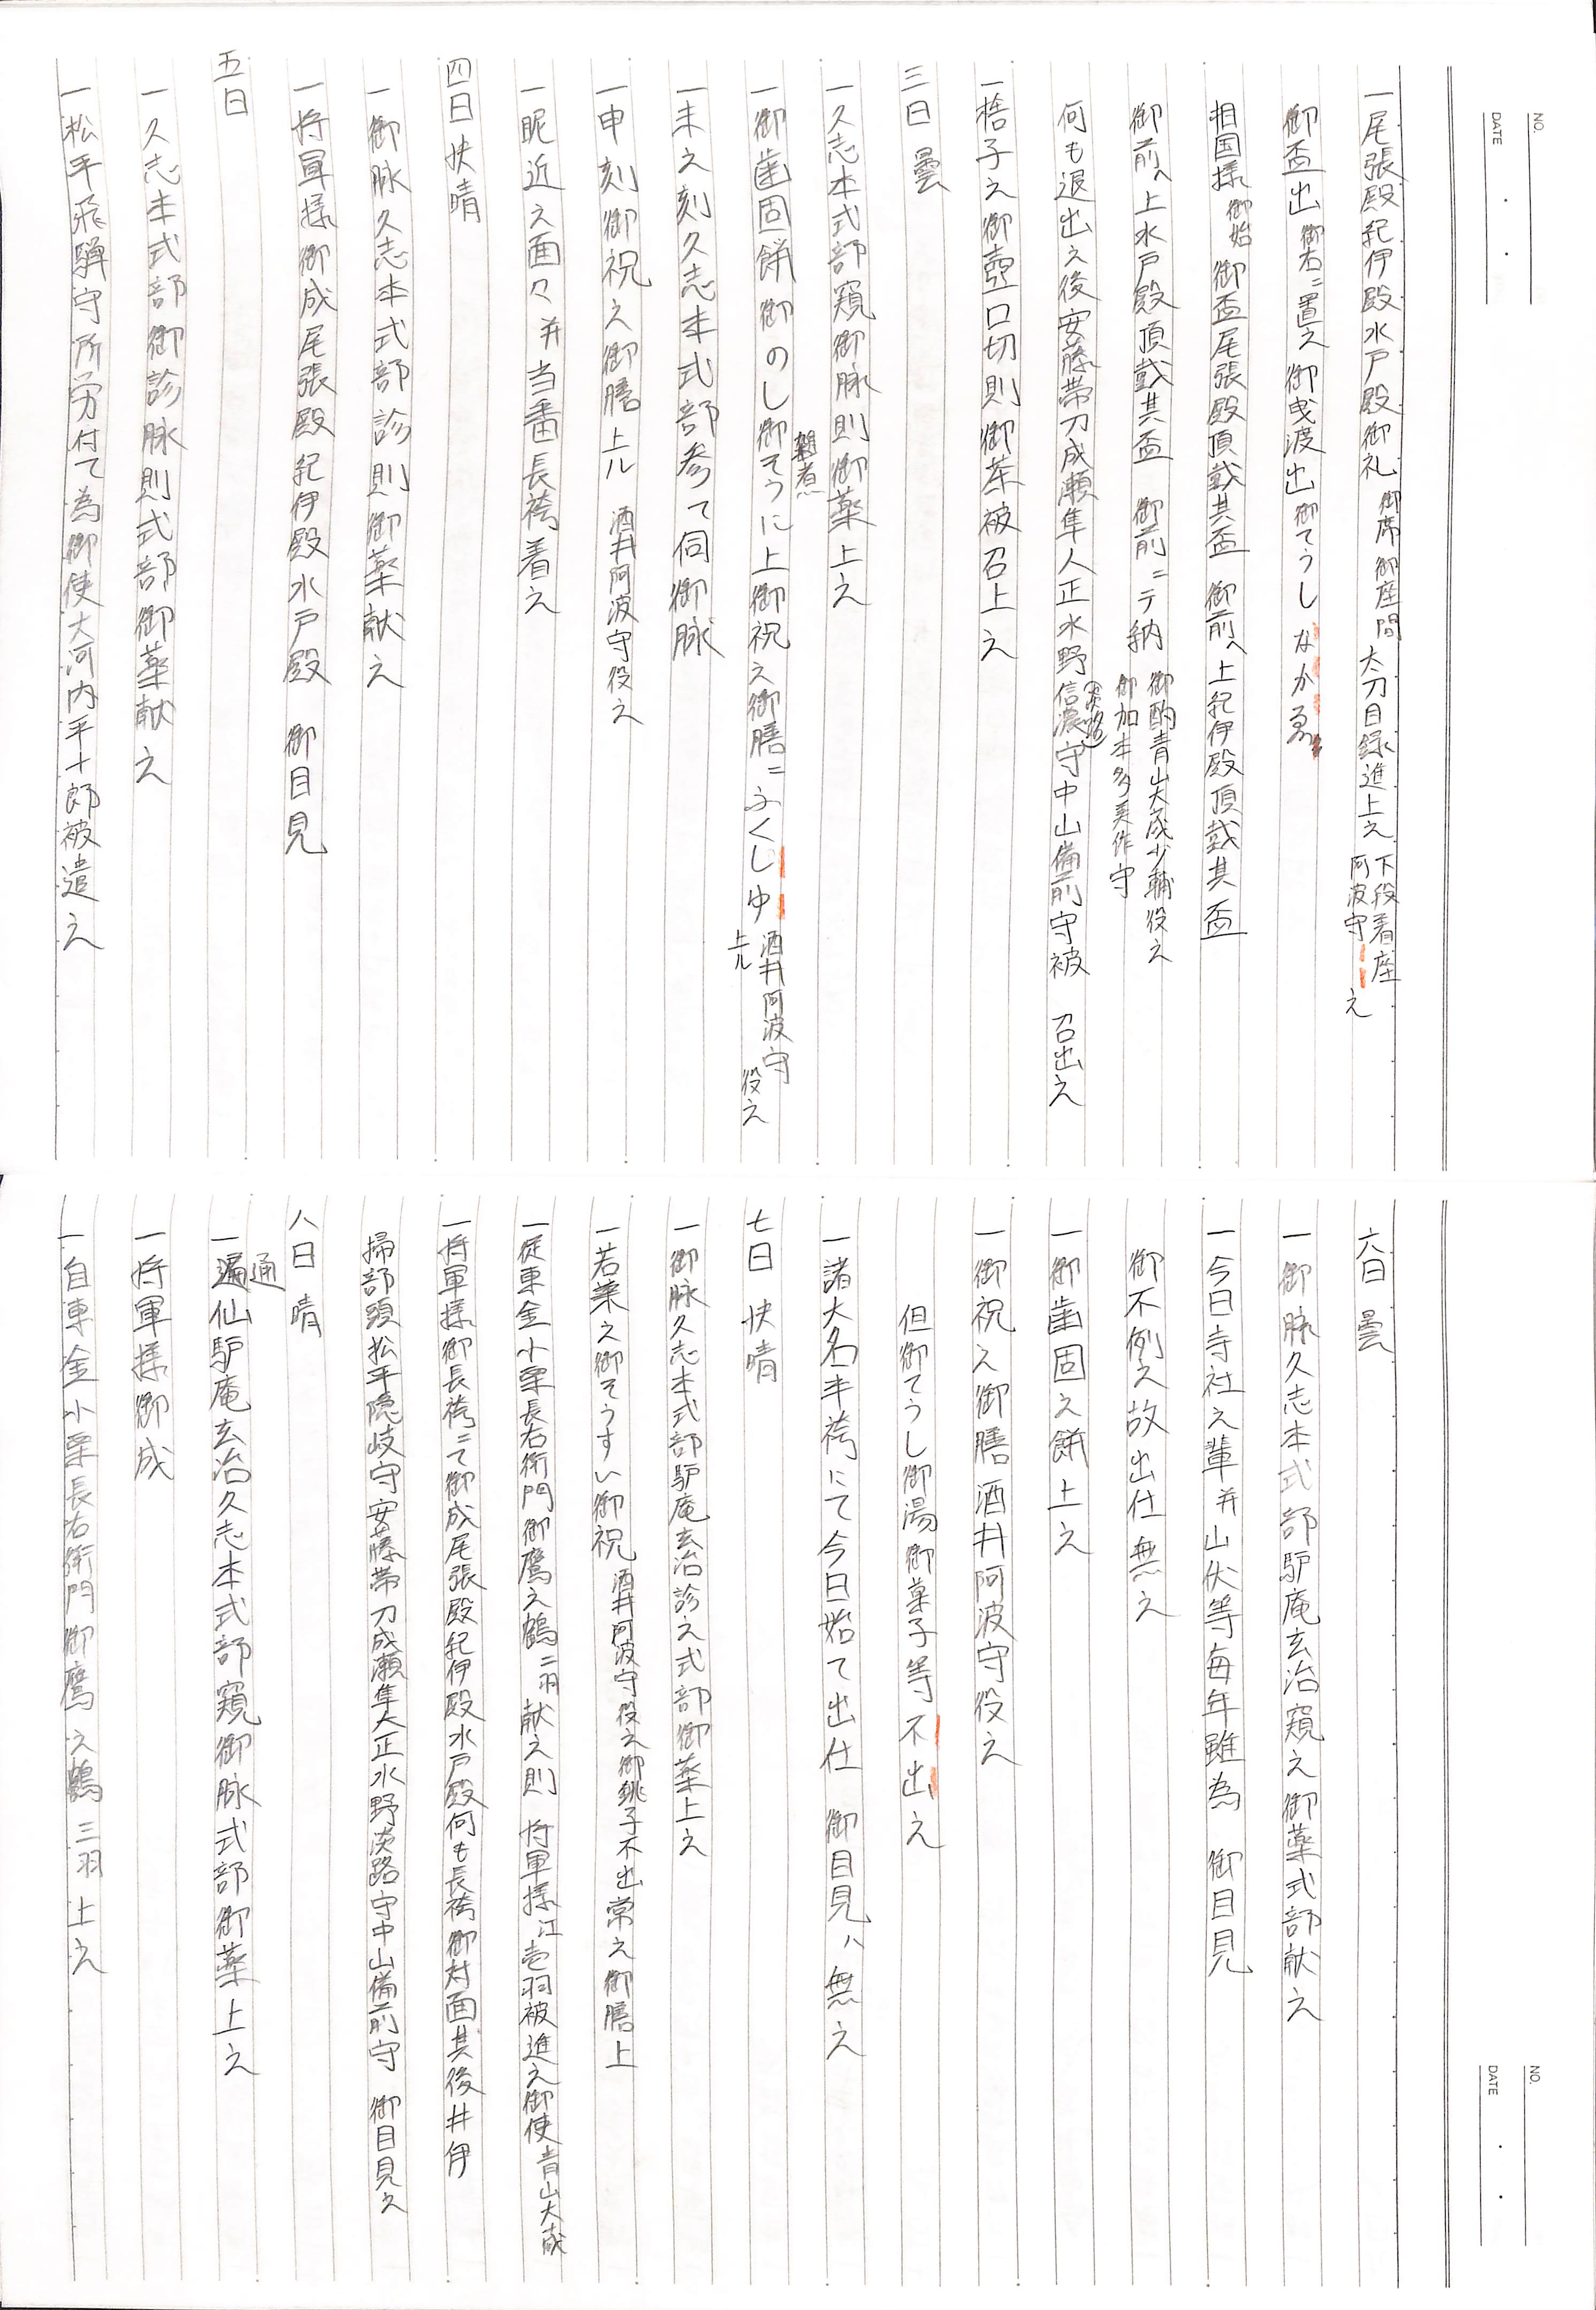 NO.
DATE
一尾張殿紀伊殿水戸殿御礼 御席御座間 太刀目録進上之 下段着座 阿波守 之
御盃出 御右ニ置之 御曵渡出 御てうし なかゑ
相国様 御始 御盃尾張殿頂戴其盃 御前へ上紀伊殿頂戴其盃
御前へ上水戸殿頂戴其盃 御前ニテ納 御酌青山大蔵少輔役之 御加本多美作守
何も退出之後安藤帯刀成瀬隼人正水野信濃守(淡路)中山備前守被 召出之
一捨子之御壺口切則御茶被召上之
三日 曇
一久志本式部窺御脉則御薬上之
一御歯固餅御のし御そうに 雑煮 上御祝之御膳ニふくしゆ上ル 酒井阿波守役之
一未之刻久志本式部参て伺御脉
一申刻御祝之御膳上ル 酒井阿波守役之
一昵近之面々并当番長袴着之
四日 快晴
一御脉久志本式部診則御薬献之
一将軍様御成尾張殿紀伊殿水戸殿 御目見
五日
一久志本式部御診脉則式部御薬献之
一松平飛騨守所労付て為御使大河内平十郎被遣之
NO.
DATE
六日 曇
一御脉久志本式部驴庵玄治窺之御薬式部献之
一今日寺社之輩并山伏等毎年雖為 御目見
御不例之故出仕無之
一御歯固之餅上之
一御祝之御膳酒井阿波守役之
但御てうし御湯御菓子等不出之
一諸大名半袴にて今日始て出仕 御目見ハ無之
七日 快晴
一御脉久志本式部驴庵玄治診之式部御薬上之
一若菜之御そうすい御祝 酒井阿波守役之御銚子不出常之御膳上
一従東金小栗長右衛門御鷹之鶴二羽献之則 将軍様江壱羽被進之御使青山大蔵
一将軍様御長袴ニて御成尾張殿紀伊殿水戸殿何も長袴御対面其後井伊
掃部頭松平隠岐守安藤帯刀成瀬隼人正水野淡路守中山備前守 御目見之
八日 晴
一通仙驴庵玄治久志本式部窺御脉式部御薬上之
一将軍様御成
一自東金小栗長右衛門御鷹之鶴三羽上之